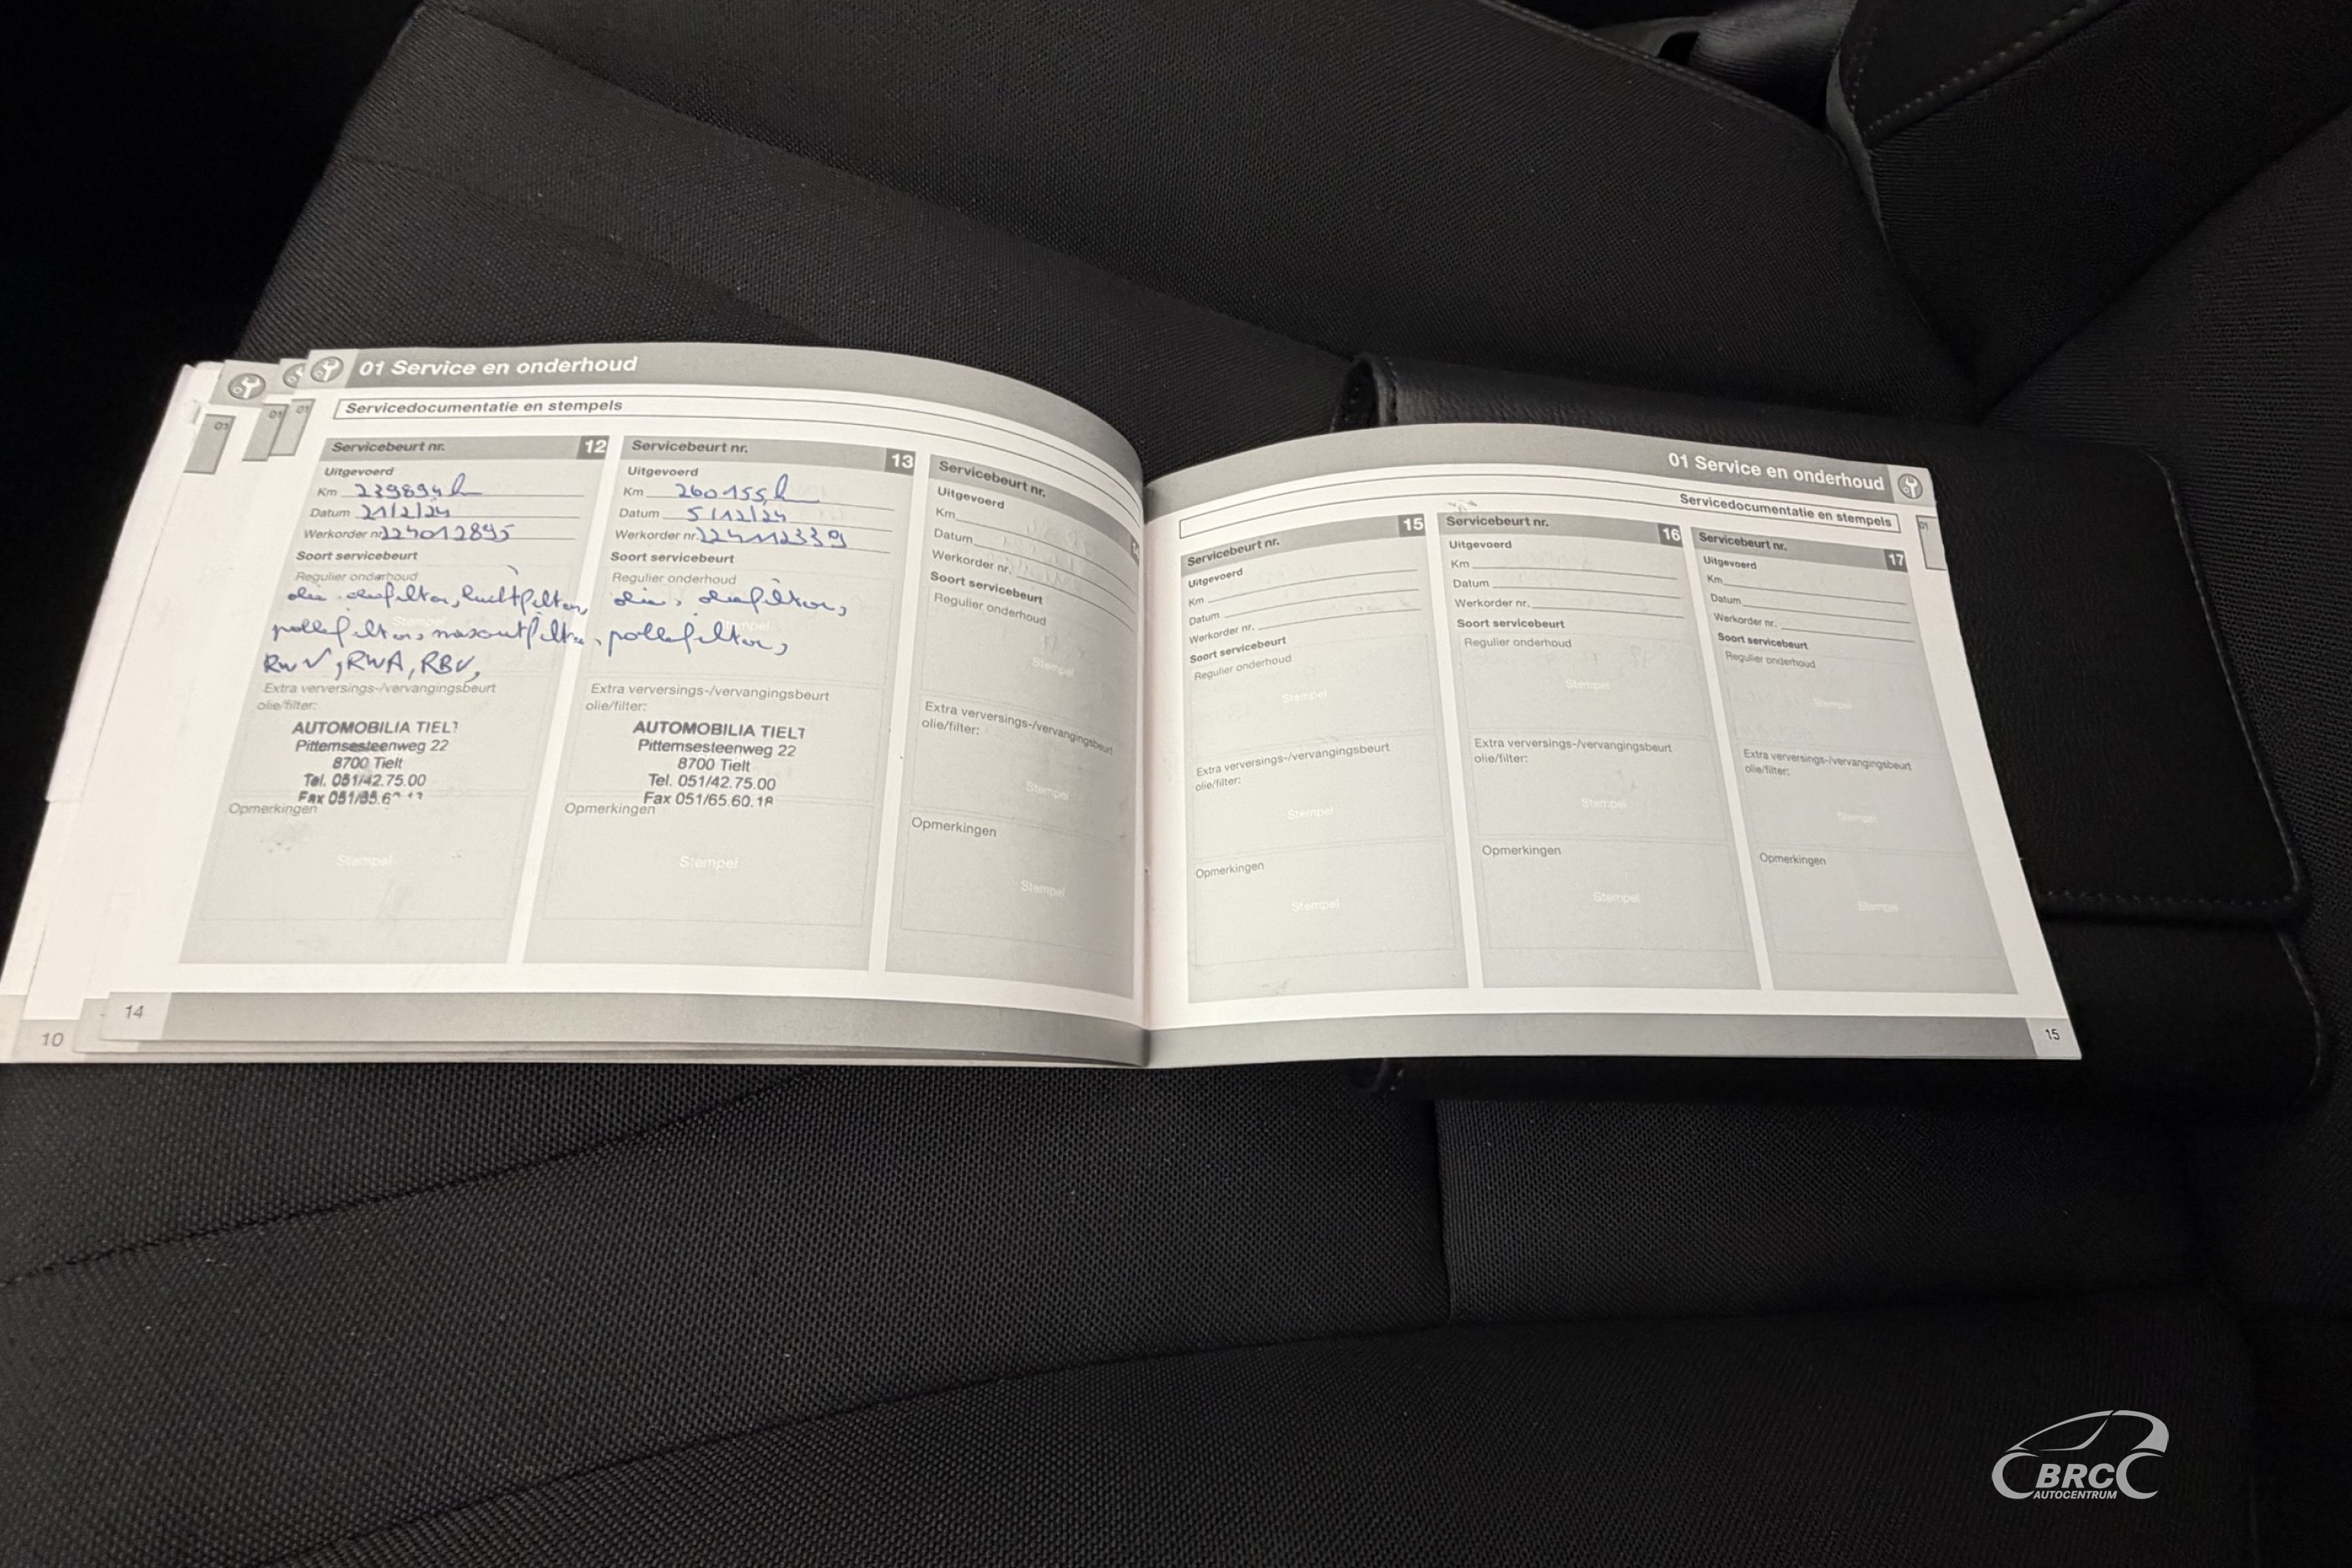 01 Service en onderhoud
Servicedocumentatie en stempels
Servicebeurt nr. 12
Uitgevoerd
Km 239894 h
Datum 21/2/24
Werkorder nr. 124012895
Soort servicebeurt
Regulier onderhoud
olie, oliefilter, luchtfilter,
pollefilter, mazoutfilter,
RWV, RWA, RBV,
Extra verversings-/vervangingsbeurt
olie/filter:
AUTOMOBILIA TIELT
Pittemsesteenweg 22
8700 Tielt
Tel. 051/42.75.00
Fax
Opmerkingen
Stempel
Servicebeurt nr. 13
Uitgevoerd
Km 260155 h
Datum 5/12/24
Werkorder nr. 124112339
Soort servicebeurt
Regulier onderhoud
olie, oliefilter,
pollefilter,
Extra verversings-/vervangingsbeurt
olie/filter:
AUTOMOBILIA TIELT
Pittemsesteenweg 22
8700 Tielt
Tel. 051/42.75.00
Fax 051/65.60.18
Opmerkingen
Stempel
Servicebeurt nr.
Uitgevoerd
Km
Datum
Werkorder nr.
Soort servicebeurt
Regulier onderhoud
Stempel
Extra verversings-/vervangingsbeurt
olie/filter:
Stempel
Opmerkingen
Stempel
14
10
01
01
01
01 Service en onderhoud
Servicedocumentatie en stempels
01
Servicebeurt nr. 15
Uitgevoerd
Km
Datum
Werkorder nr.
Soort servicebeurt
Regulier onderhoud
Stempel
Extra verversings-/vervangingsbeurt
olie/filter:
Stempel
Opmerkingen
Stempel
Servicebeurt nr. 16
Uitgevoerd
Km
Datum
Werkorder nr.
Soort servicebeurt
Regulier onderhoud
Stempel
Extra verversings-/vervangingsbeurt
olie/filter:
Stempel
Opmerkingen
Stempel
Servicebeurt nr. 17
Uitgevoerd
Km
Datum
Werkorder nr.
Soort servicebeurt
Regulier onderhoud
Stempel
Extra verversings-/vervangingsbeurt
olie/filter:
Stempel
Opmerkingen
Stempel
15
BRC
AUTOCENTRUM